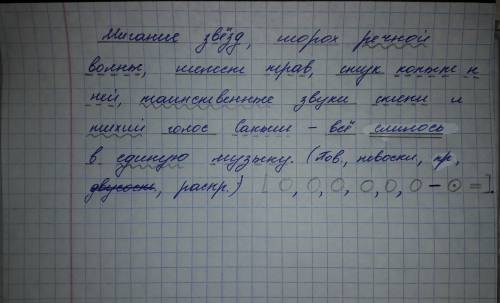 Мигание звёзд, шорох речной
волны, шелест трав, стук копыт ко
ней, таинственные звуки степи и
тихий голос Саньши – всё слилось
в единую музыку. (Пов, невоскл, пр,
двусост, распр.) [О, О, О, О, О, О – ⊙ =].